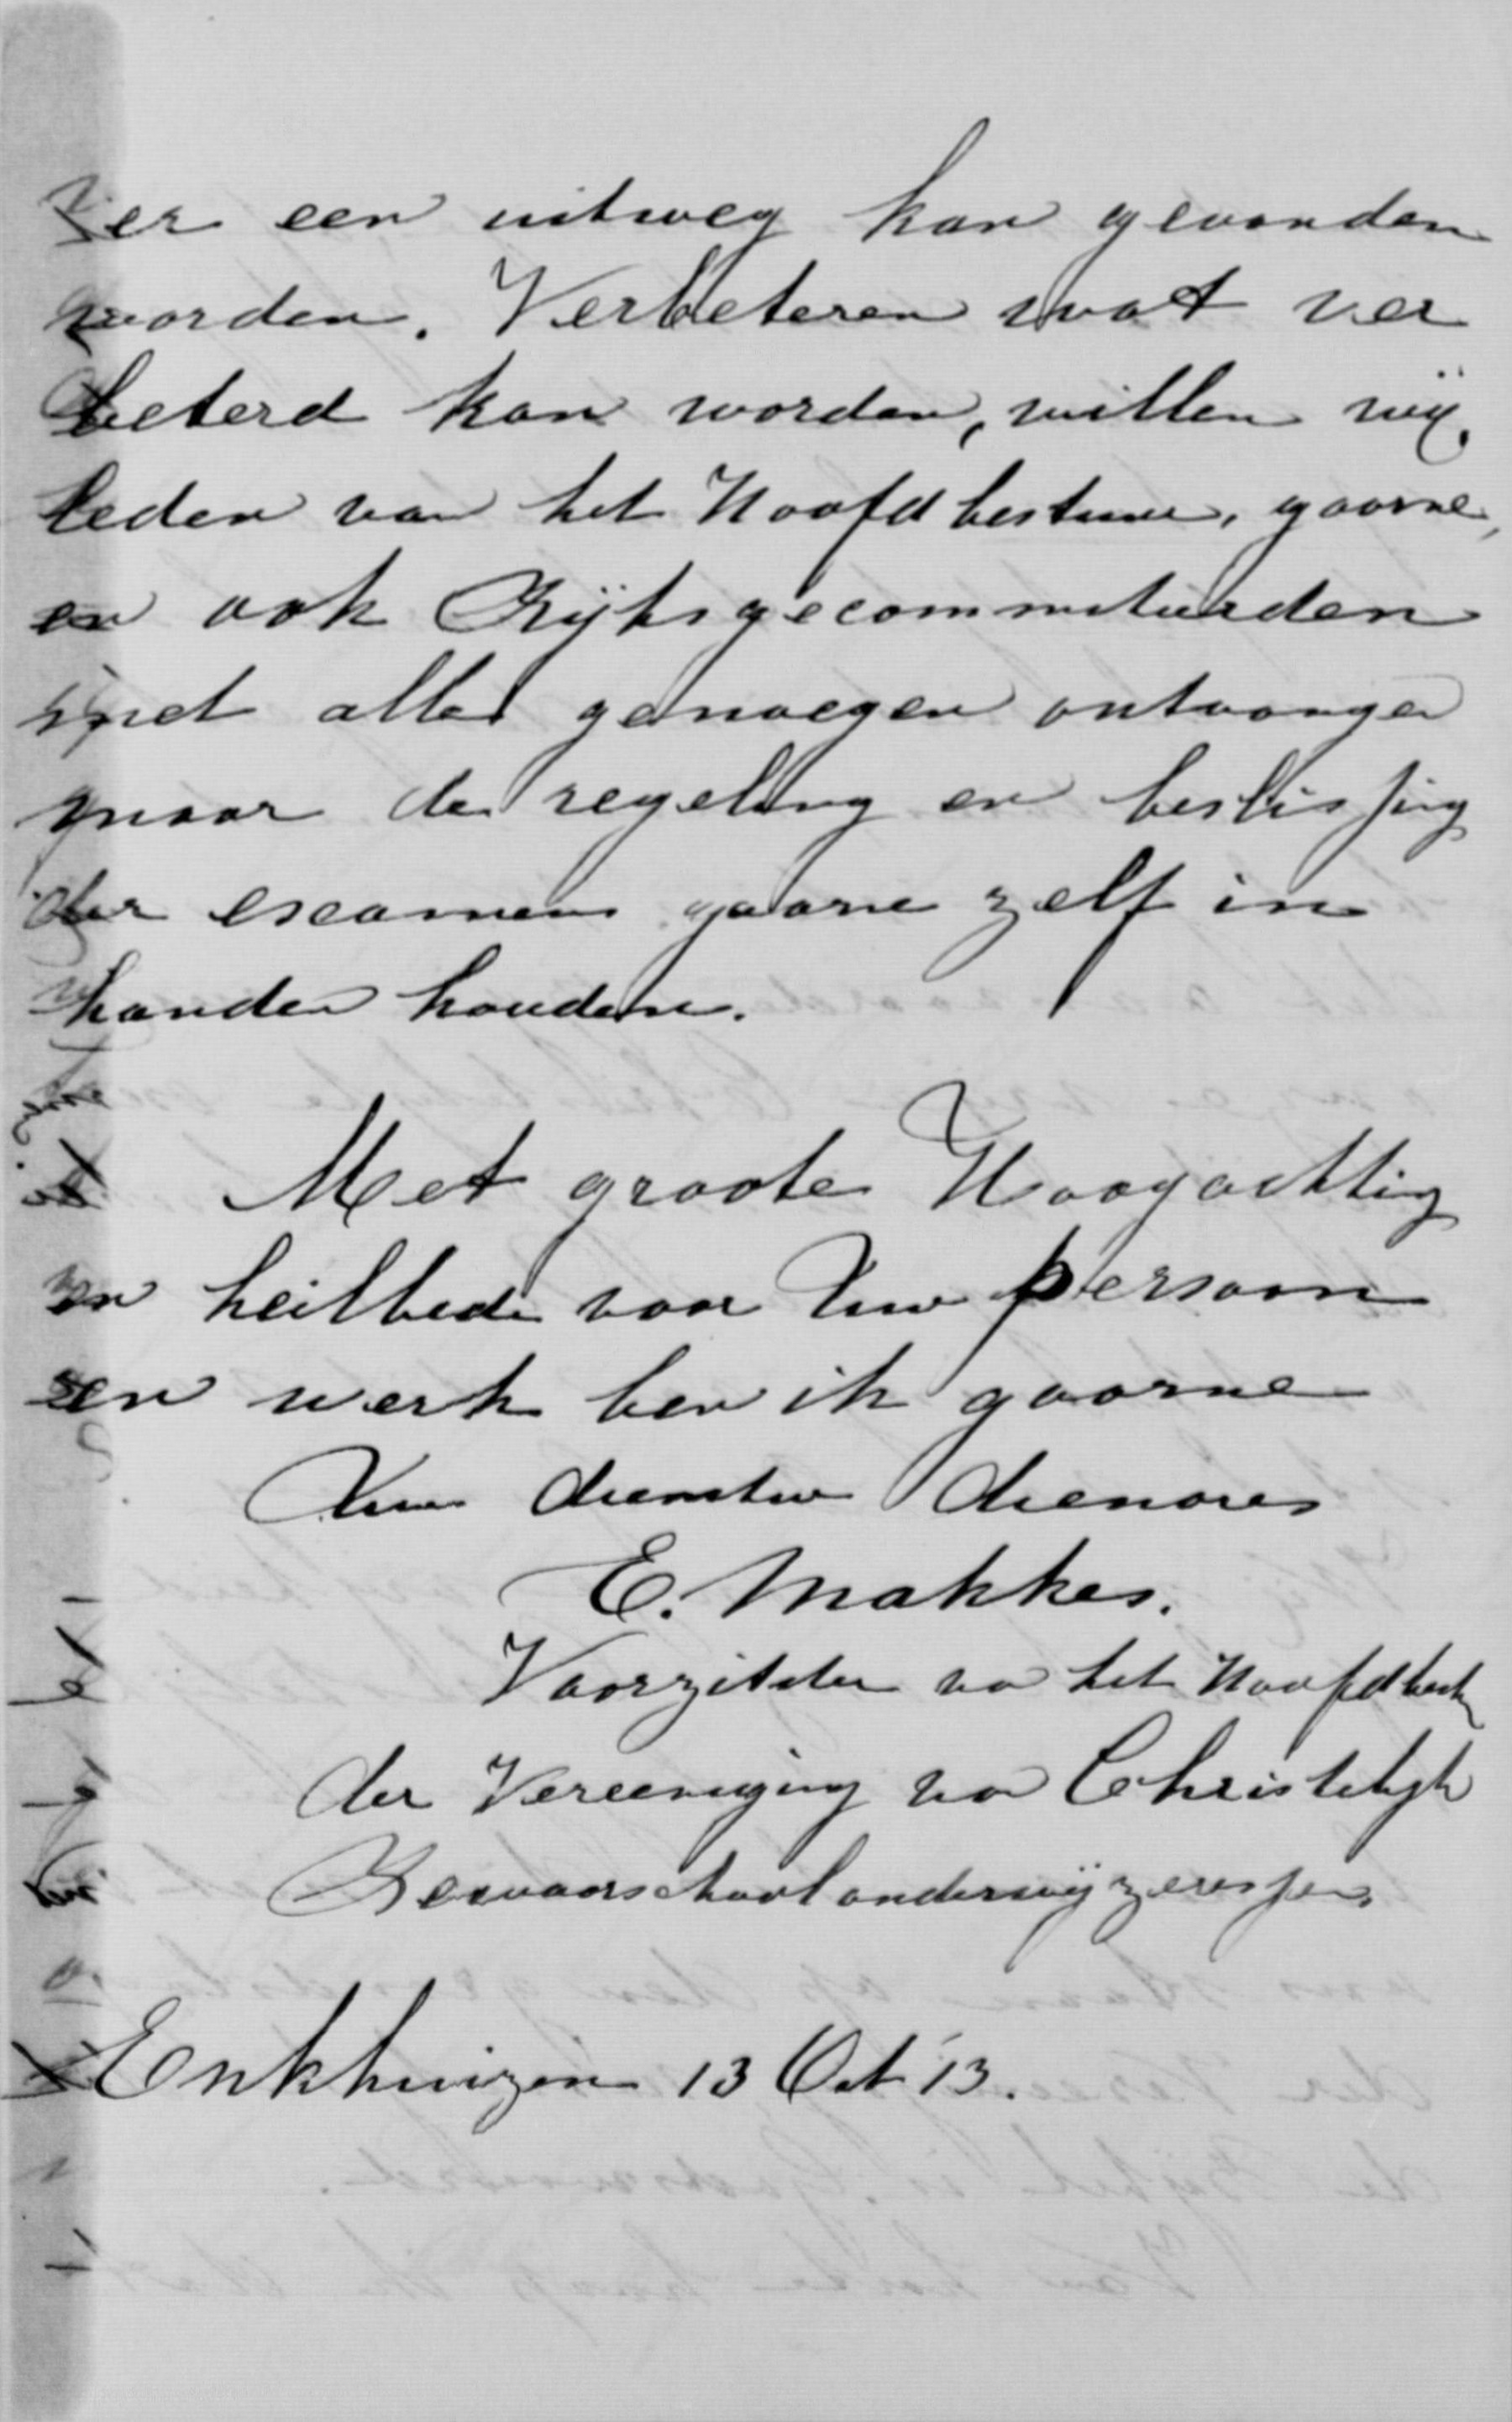 er een uitweg kan gevonden
worden. Verbeteren wat ver
beterd kan worden, willen wij,
leden van het Hoofdbestuur, gaarne,
en ook Rijksgecommitteerden
met alle genoegen ontvangen
maar de regeling en beslissing
der examens gaarne zelf in
handen houden.
Met groote Hoogachting
en heilbede voor Uw persoon
en werk ben ik gaarne
Uw dienstw dienares
E. Makkes.
Voorzitster va het Hoofdbest
der Vereeniging va Christelijk
Bewaarschoolonderwijzeressen.
Enkhuizen 13 Oct '13.